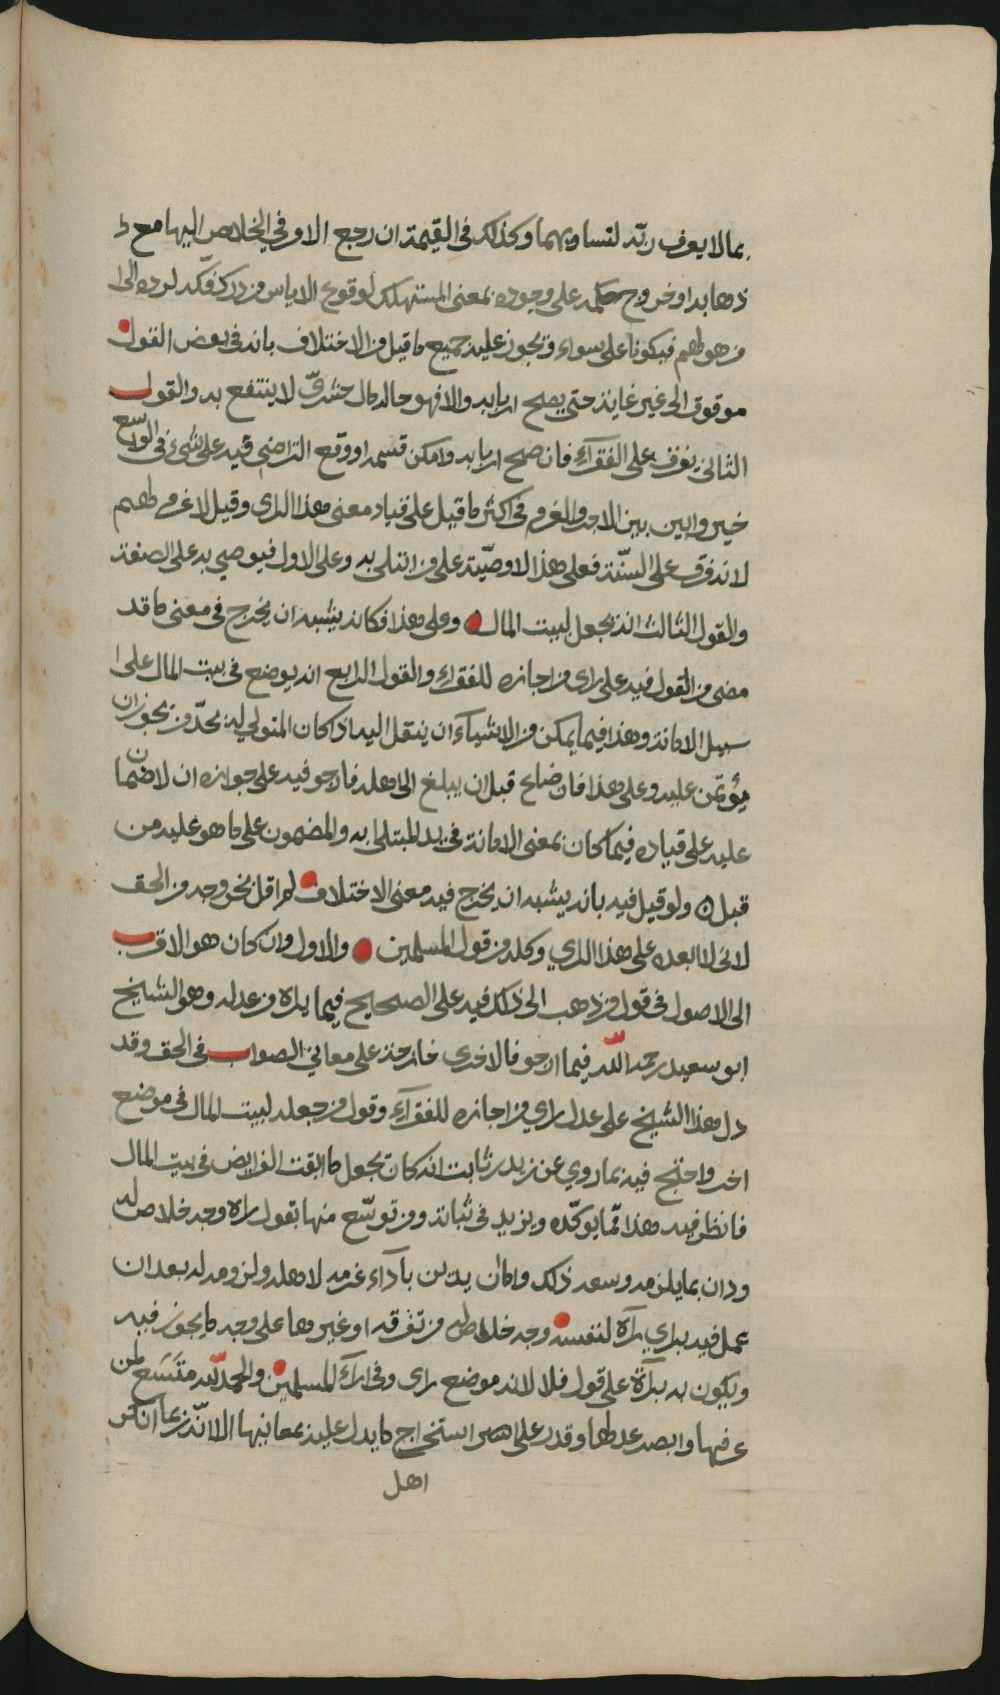 بما لا يعرف ربّه لتساويهما وكذلك في القيمة ان رجع الامر في الخلاص اليها مع
ذهابه او خروج حكمه على وجوده بمعنى المستهلك لوقوع الاياس من درك فكه لرده الى
من هو لهم فيكونا على سواء ويجوز عليه جميع ما قيل من الاختلاف بانه في بعض القول
موقوف الى غير غاية حتى يصح اربابه والا فهو حاله مال حشريّ لا ينتفع به والقول
الثاني يفرق على الفقرآء فان صح اربابه وامكن قسمه او وقع التراضي فيه على شيء في الواسع
خيروا بين بين الاجر والغرم في اكثر ما قيل على قياد معنى هذا الراي وقيل لا غرم لهم
لانه فرق على السنّة فعلى هذا لا وصيّة على من ابتلي به وعلى الاول فيوصي به على الصفة
والقول الثالث انه يجعل لبيت المال وعلى هذا فكانه يشبه ان يخرج في معنى ما قد
مضى من القول فيه على راي من اجازه للفقراء والقول الرابع انه يوضع في بيت المال على
سبيل الامانة وهذا فيما يمكن من الاشيآء ان ينقل اليه اذا كان المتولي له بحدّ من يجوز ان
يؤتمن عليه وعلى هذا فان ضاع قبل ان يبلغ الى اهله فارجو فيه على جوازه ان لا ضمان
عليه على قياده فيما كان بمعنى الامانة في يد المبتلى به والمضمون على ما هو عليه من
قبل ولو قيل فيه بانه يشبه ان يخرج فيه معنى الاختلاف لم اقل بخروجه من الحق
لاني لا ابعده على هذا الراي وكله من قول المسلمين والاول وان كان هو الاقرب
الى الاصول في قول من ذهب الى ذلك فيه على الصحيح فيما يراه من عدله وهو الشيخ
ابو سعيد رحمه الله فيما ارجو فالاخرى خارجة على معاني الصواب في الحق وقد
دل هذا الشيخ على عدل راي من اجازه للفقرآء وقول من جعله لبيت المال في موضع
اخر واحتج فيه بما روي عن زيد بن ثابت انه كان يجعل ما ابقت الفرايض في بيت المال
فانظر فيه هذا ممّا يوكّده ويزيد في ثباته ومن توسّع منها بقول راه وجه خلاص له
ودان بما يلزمه وسعه ذلك وما كان يدين بأدآء غرمه لاهله ولزومه له بعد ان
عمل فيه براي رآه لنفسه وجه خلاص له من تفرقه او غيرها على وجه ما يجوز فيه
ويكون له برآة على قول فلا لانه موضع راي وفي ارآء المسلمين والحمد لله متّسع لمن
عرفها وابصر عدلها وقدر على استخراج ما يدل عليه بمعانيها الا انّه ربما انكر
اهل